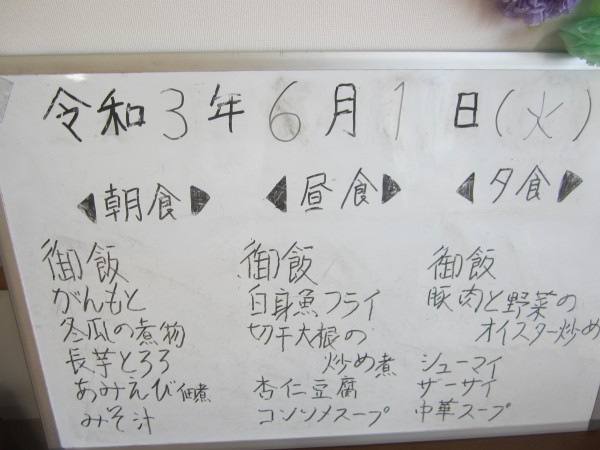 令和3年6月1日(火)
◀朝食▶
御飯
がんもと
冬瓜の煮物
長芋とろろ
あみえび佃煮
みそ汁
◀昼食▶
御飯
白身魚フライ
切干大根の
炒め煮
杏仁豆腐
コンソメスープ
◀夕食▶
御飯
豚肉と野菜の
オイスター炒め
シューマイ
ザーサイ
中華スープ